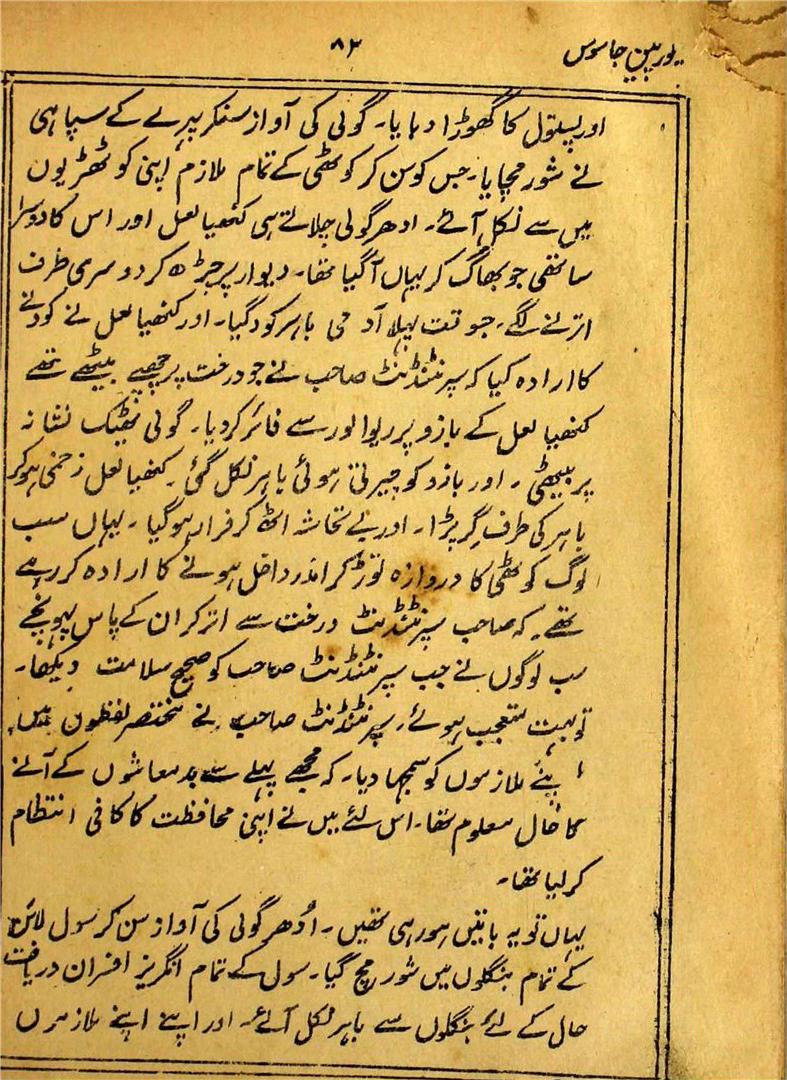 یورپین جاسوس
۸۳
اور پستول کا گھوڑا دبایا۔ گولی کی آواز سنکر پہرے کے سپاہی
نے شور مچایا۔ جس کو سن کر کوٹھی کے تمام ملازم اپنی کوٹھڑیوں
میں سے نکل آئے۔ ادھر گولی چلاتے ہی کنھیا لعل اور اس کا دوسرا
ساتھی جو بھاگ کر یہاں آگیا تھا۔ دیوار پر چڑھ کر دوسری طرف
اترنے لگے۔ جوقت پہلا آدمی باہر کود گیا۔ اور کنھیا لعل نے کودنے
کا ارادہ کیا کہ سپرنٹنڈنٹ صاحب نے جو درخت پر چھپے بیٹھے تھے
کنھیا لعل کے بازو پر ریوالور سے فائر کردیا۔ گولی ٹھیک نشانہ
پر بیٹھی۔ اور بازو کو چیرتی ہوئی باہر نکل گئی۔ کنھیا لعل زخمی ہو کر
باہر کی طرف گر پڑا۔ اور بے تحاشہ اٹھ کر فرار ہوگیا۔ یہاں سب
لوگ کوٹھی کا دروازہ توڑ کر اندر داخل ہونے کا ارادہ کررہے
تھے۔ کہ صاحب سپرنٹنڈنٹ درخت سے اتر کر ان کے پاس پہونچے
سب لوگوں نے جب سپرنٹنڈنٹ صاحب کو صحیح سلامت دیکھا۔
تو بہت متعجب ہوئے۔ سپرنٹنڈنٹ صاحب نے مختصر لفظوں میں
اپنے ملازموں کو سمجھا دیا۔ کہ مجھے پہلے سے بدمعاشوں کے آنے
کا حال معلوم تھا۔ اس لئے میں نے اپنی محافظت کا کافی انتظام
کرلیا تھا۔
یہاں تو یہ باتیں ہورہی تھیں۔ اُدھر گولی کی آواز سن کر سول لائن
کے تمام بنگلوں میں شور مچ گیا۔ سول کے تمام انگریز افسران دریافت
حال کے لئے بنگلوں سے باہر نکل آئے۔ اور اپنے اپنے ملازموں